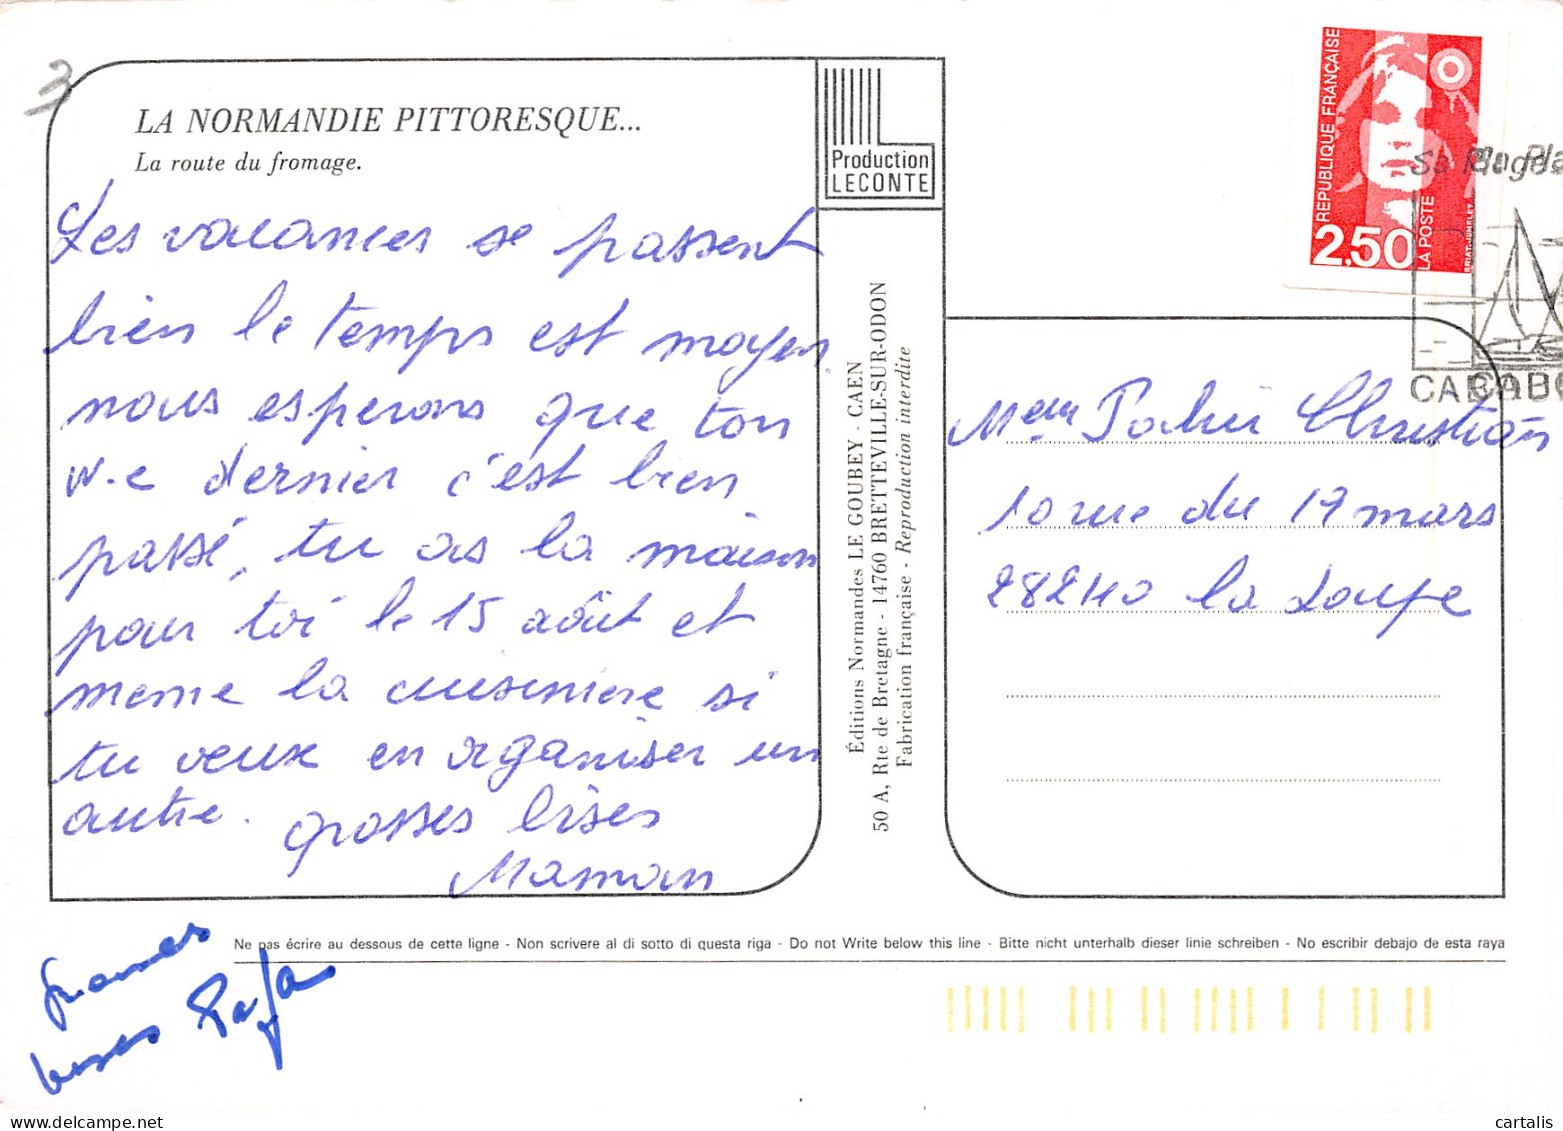 3
LA NORMANDIE PITTORESQUE...
La route du fromage.
Les vacances se passent
bien le temps est moyen
nous esperons que ton
w-e dernier c'est bien
passé, tu as la maison
pour toi le 15 août et
meme la cuisiniere si
tu veux en organiser un
autre. grosses bises
Maman
grosses
bises Papa
Production
LECONTE
Éditions Normandes LE GOUBEY - CAEN
50 A, Rte de Bretagne - 14760 BRETTEVILLE-SUR-ODON
Fabrication française - Reproduction interdite
REPUBLIQUE FRANÇAISE
2,50
LA POSTE
BRIAT-JUMELET
Sa Plage
CABO
Christian
10 rue du 17 mars
28240 la Loupe
Ne pas écrire au dessous de cette ligne - Non scrivere al di sotto di questa riga - Do not Write below this line - Bitte nicht unterhalb dieser linie schreiben - No escribir debajo de esta raya
cartalis